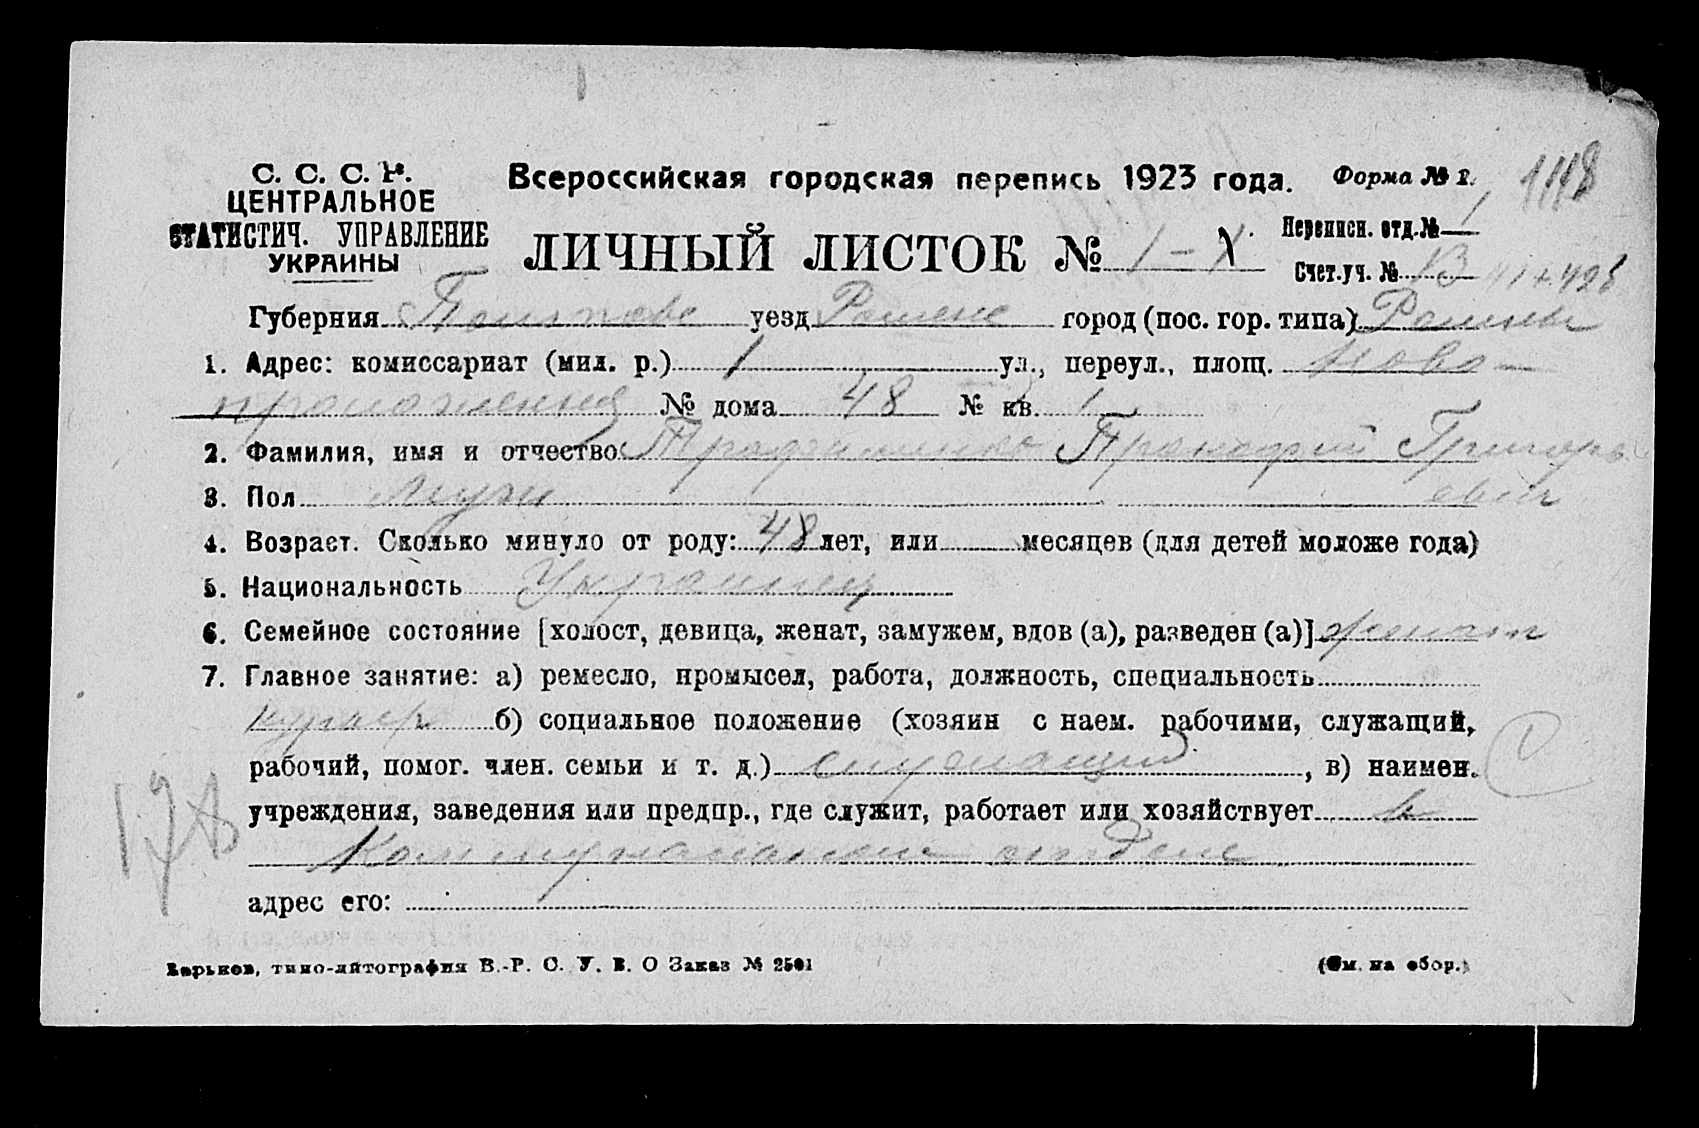 С. С. С. Р.
ЦЕНТРАЛЬНОЕ
СТАТИСТИЧ. УПРАВЛЕНИЕ
УКРАИНЫ
Всероссийская городская перепись 1923 года.
Форма № 1.
1118
ЛИЧНЫЙ ЛИСТОК № 1 –
Переписн. отд. № 1
Счет. уч. № 13
Губерния Полтава уезд Ромене город (пос. гор. типа) Ромны
1. Адрес: комиссариат (мил. р.) 1 ул., переул., площ. Ново-
проложенная № дома 48 № кв. 1
2. Фамилия, имя и отчество Прокофий Григорь
3. Пол Муж евич
4. Возраст. Сколько минуло от роду: 48 лет, или месяцев (для детей моложе года)
5. Национальность Украинец
6. Семейное состояние [холост, девица, женат, замужем, вдов (а), разведен (а)] женат
7. Главное занятие: а) ремесло, промысел, работа, должность, специальность
курьер б) социальное положение (хозяин с наем. рабочими, служащий,
рабочий, помог. член. семьи и т. д.) служащий, в) наимен.
учреждения, заведения или предпр., где служит, работает или хозяйствует в
Коммунальном отделе
адрес его:
Харьков, типо-литография В.-Р. С. У. В. О Заказ № 2501
(См. на обор.)